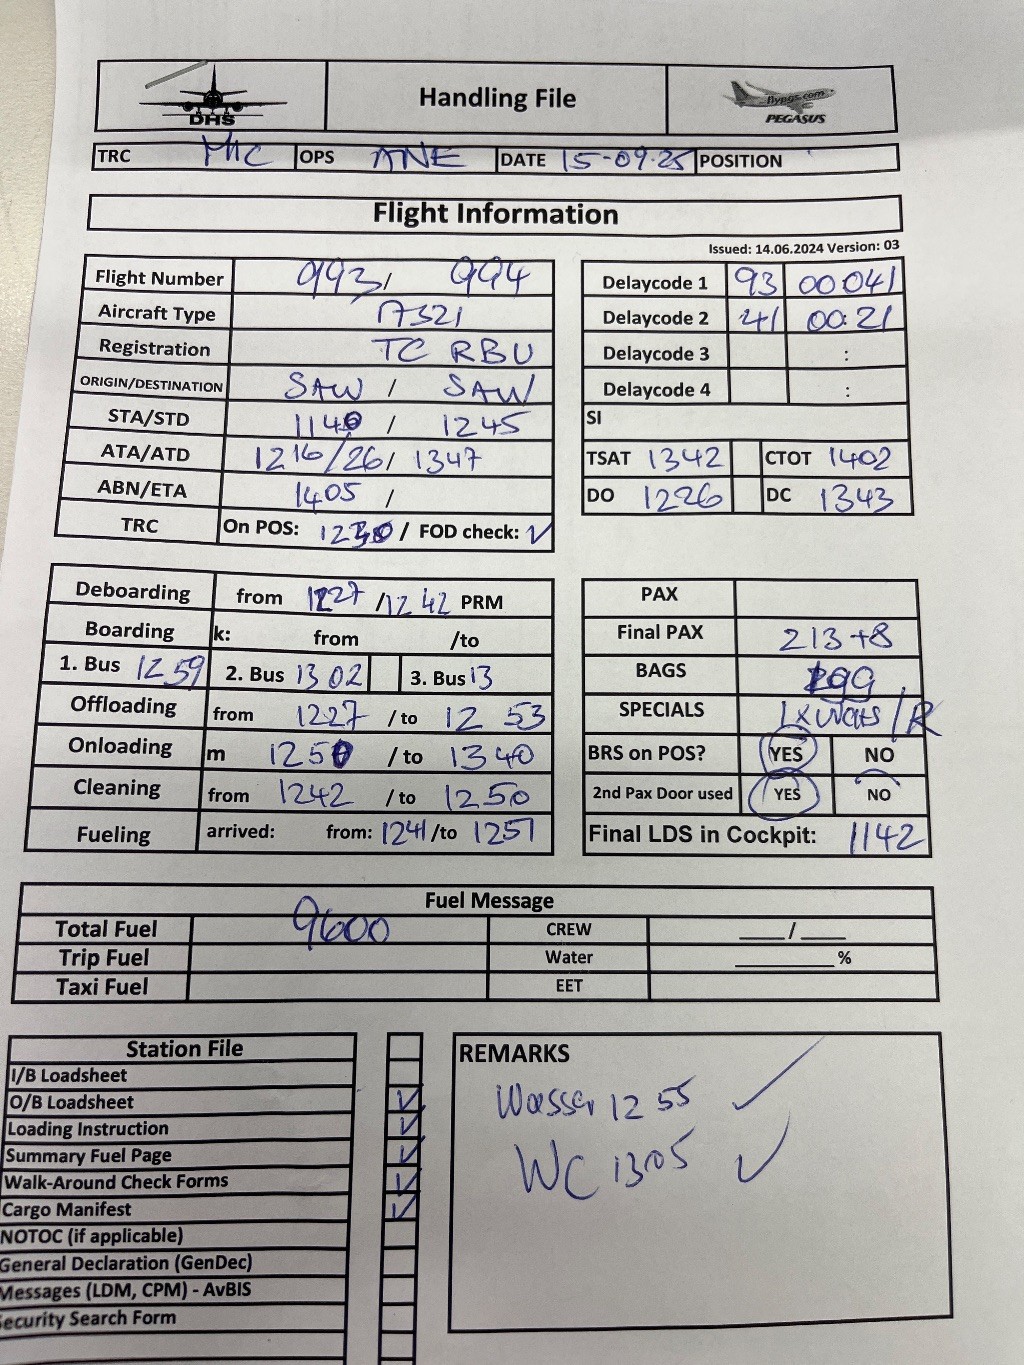 DHS Handling File flypgs.com PEGASUS
TRC MIC OPS ANE DATE 15-09-25 POSITION
Flight Information
Issued: 14.06.2024 Version: 03
Flight Number 993 / 994
Aircraft Type A321
Registration TC RBU
ORIGIN/DESTINATION SAW / SAW
STA/STD 1140 / 1245
ATA/ATD 1216/26 / 1347
ABN/ETA 1405 /
TRC On POS: / FOD check: ✓
Delaycode 1 93 00:041
Delaycode 2 41 00:21
Delaycode 3 :
Delaycode 4 :
SI
TSAT 1342 CTOT 1402
DO 1226 DC 1343
Deboarding from 1227 / 1242 PRM
Boarding k: from /to
1. Bus 1259 2. Bus 1302 3. Bus 13
Offloading from 1227 / to 1253
Onloading m / to 1340
Cleaning from 1242 / to 1250
Fueling arrived: from: 1241 /to 1251
PAX
Final PAX 213+8
BAGS
SPECIALS /R
BRS on POS? YES NO
2nd Pax Door used YES NO
Final LDS in Cockpit: 1142
Fuel Message
Total Fuel 9600 CREW ___/___
Trip Fuel Water ________%
Taxi Fuel EET
Station File
I/B Loadsheet
O/B Loadsheet ✓
Loading Instruction ✓
Summary Fuel Page ✓
Walk-Around Check Forms ✓
Cargo Manifest ✓
NOTOC (if applicable)
General Declaration (GenDec)
Messages (LDM, CPM) - AvBIS
Security Search Form
REMARKS
Wasser 1255 ✓
WC 1305 ✓